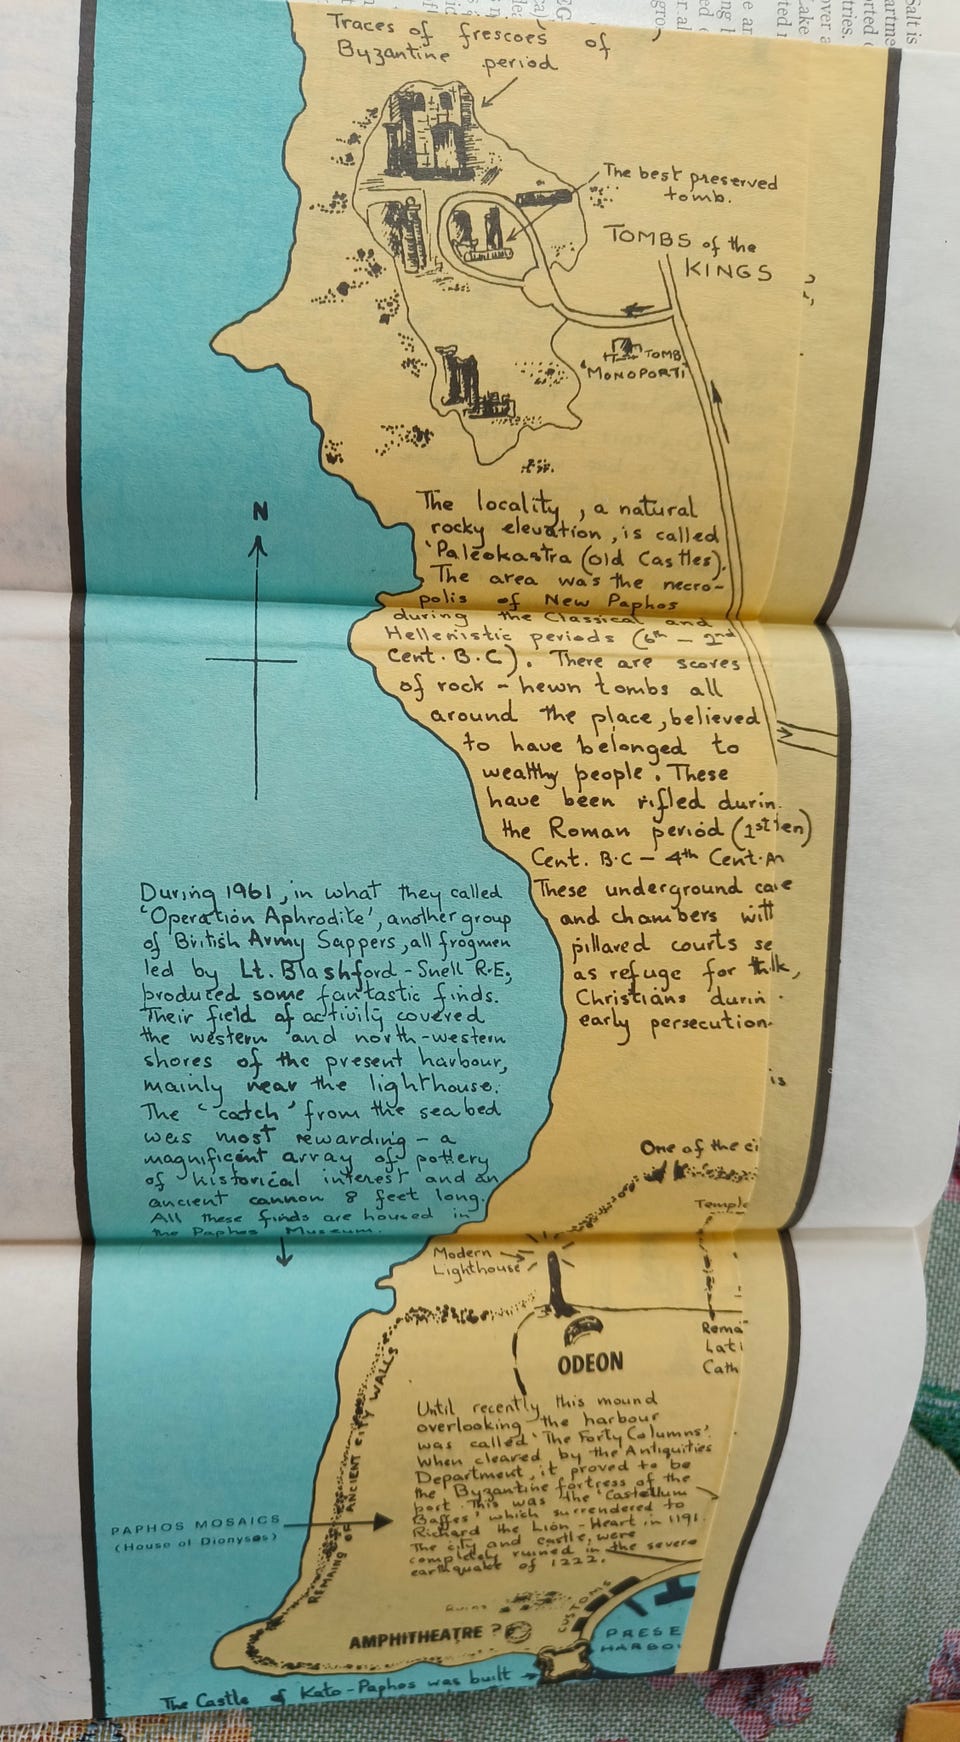 Traces of frescoes of
Byzantine period
The best preserved
tomb.
TOMBS of the
KINGS
TOMB
'MONOPORTI'
N
The locality, a natural
rocky elevation, is called
'Paleokastra (old Castles).
The area was the necro-
polis of New Paphos
during the Classical and
Hellenistic periods (6th - 2nd
Cent. B.C). There are scores
of rock - hewn tombs all
around the place, believed
to have belonged to
wealthy people. These
have been rifled durin
the Roman period (1st
Cent. B.C - 4th Cent.
These underground
and chambers
pillared courts se
as refuge for
Christians durin
early persecution
is
During 1961, in what they called
'Operation Aphrodite', another group
of British Army Sappers, all frogmen
led by Lt. Blashford - Snell R.E,
produced some fantastic finds.
Their field of activity covered
the western and north-western
shores of the present harbour,
mainly near the lighthouse.
The 'catch' from the sea bed
was most rewarding - a
magnificent array of pottery
of historical interest and an
ancient cannon 8 feet long.
All these finds are housed in
the Paphos Museum.
One of the ci
Temple
Modern
Lighthouse
ODEON
Rema
Lati
Cath
REMAINS OF ANCIENT CITY WALLS
Until recently this mound
overlooking the harbour
was called 'The Forty Columns'.
When cleared by the Antiquities
Department, it proved to be
the Byzantine fortress of the
port. This was the 'Castellum
Baffes' which surrendered to
Richard the Lion - Heart in 1191.
The city and castle, were
completely ruined in the severe
earthquake of 1222.
PAPHOS MOSAICS
(House of Dionysos)
Ruins
CUSTOMS
AMPHITHEATRE ?
PRESE
HARBOU
The Castle of Kato-Paphos was built